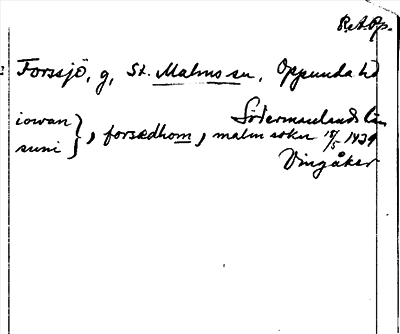 R.A.Pp.
Forssjö, g, St. Malms sn, Oppunda hd
Södermanlands län
iowan
suni }, forsædhom, malm sokn 15/5 1439
Vingåker